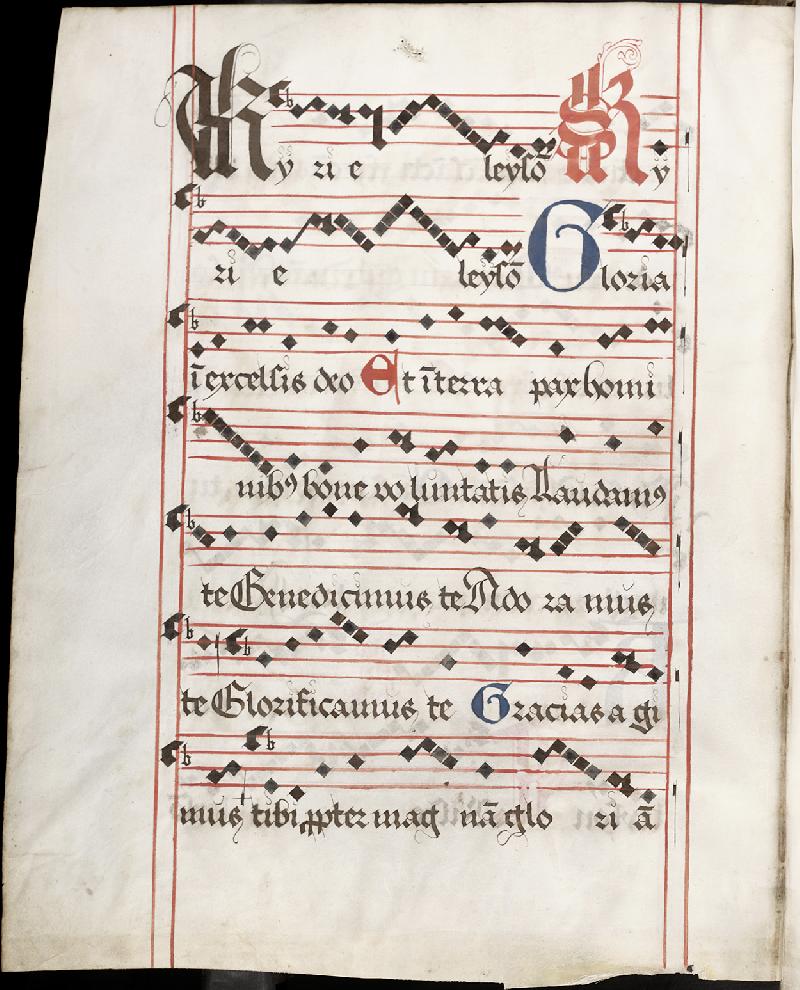 Ky ri e leyso̅ Ky
ri e leyso̅ Gloria
i̅ excelsis deo Et i̅ terra pax homi
nibꝰ bone vo luntatis Laudamꝰ
te Benedicimus te Ado ra mus
te Glorificamus te Gracias a gi
mus tibi ꝓpter mag na̅ glo ri a̅